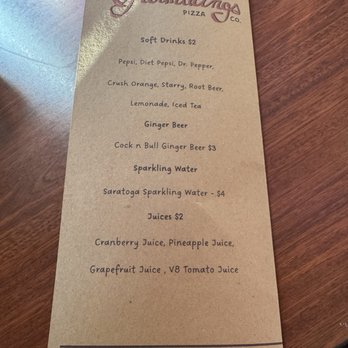 PIZZA CO.
Soft Drinks $2
Pepsi, Diet Pepsi, Dr. Pepper,
Crush Orange, Starry, Root Beer,
Lemonade, Iced Tea
Ginger Beer
Cock n Bull Ginger Beer $3
Sparkling Water
Saratoga Sparkling Water - $4
Juices $2
Cranberry Juice, Pineapple Juice,
Grapefruit Juice , V8 Tomato Juice